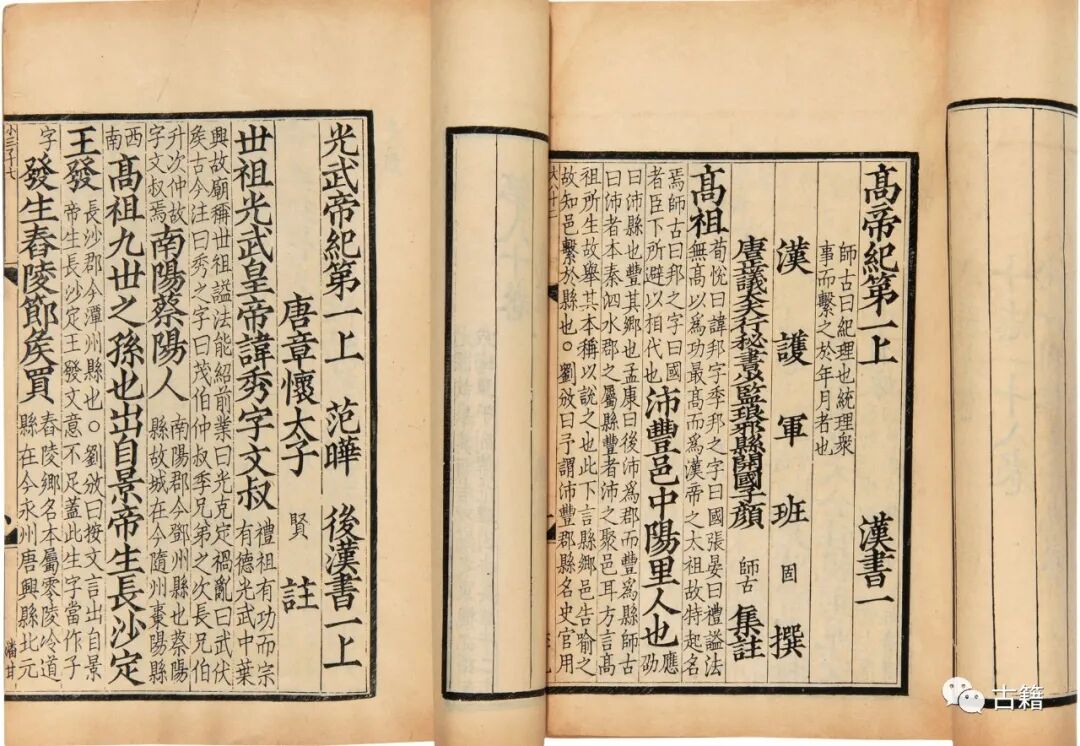 髙帝紀第一上 漢書一
師古曰紀理也統理衆
事而繫之於年月者也
漢護軍班固撰
唐正議大夫行秘書少監琅邪縣開國子顏師古集註
髙祖
荀悅曰諱邦字季邦之字曰國張晏曰禮謚法
無髙以爲功最髙而爲漢帝之太祖故特起名
焉師古曰邦之字曰國
者臣下所避以相代也
沛豐邑中陽里人也
應
劭
曰沛縣也豐其鄉也孟康曰後沛爲郡而豐爲縣師古
曰沛者本秦泗水郡之屬縣豐者沛之聚邑耳方言髙
祖所生故舉其本稱以說之也此下言縣鄉邑告喻之
故知邑繫於縣也。劉攽曰予謂沛豐郡縣名史官用
光武帝紀第一上 范曄 後漢書一上
唐章懷太子賢註
丗祖光武皇帝諱秀字文叔
禮祖有功而宗
有德光武中葉
興故廟稱丗祖謚法能紹前業曰光克定禍亂曰武伏
矦古今注曰秀之字曰茂伯仲叔季兄弟之次長兄伯
升次仲故
字文叔焉
南陽蔡陽人
南陽郡今鄧州縣也蔡陽
縣故城在今隨州棗陽縣
西
南
髙祖九丗之孫也出自景帝生長沙定
王發
長沙郡今潭州縣也。劉攽曰按文言出自景
帝生長沙定王發文意不足蓋此生字當作子
字
發生舂陵節矦買
舂陵鄉名本屬零陵冷道
縣在今永州唐興縣北元
小三千七
潘甘
古籍